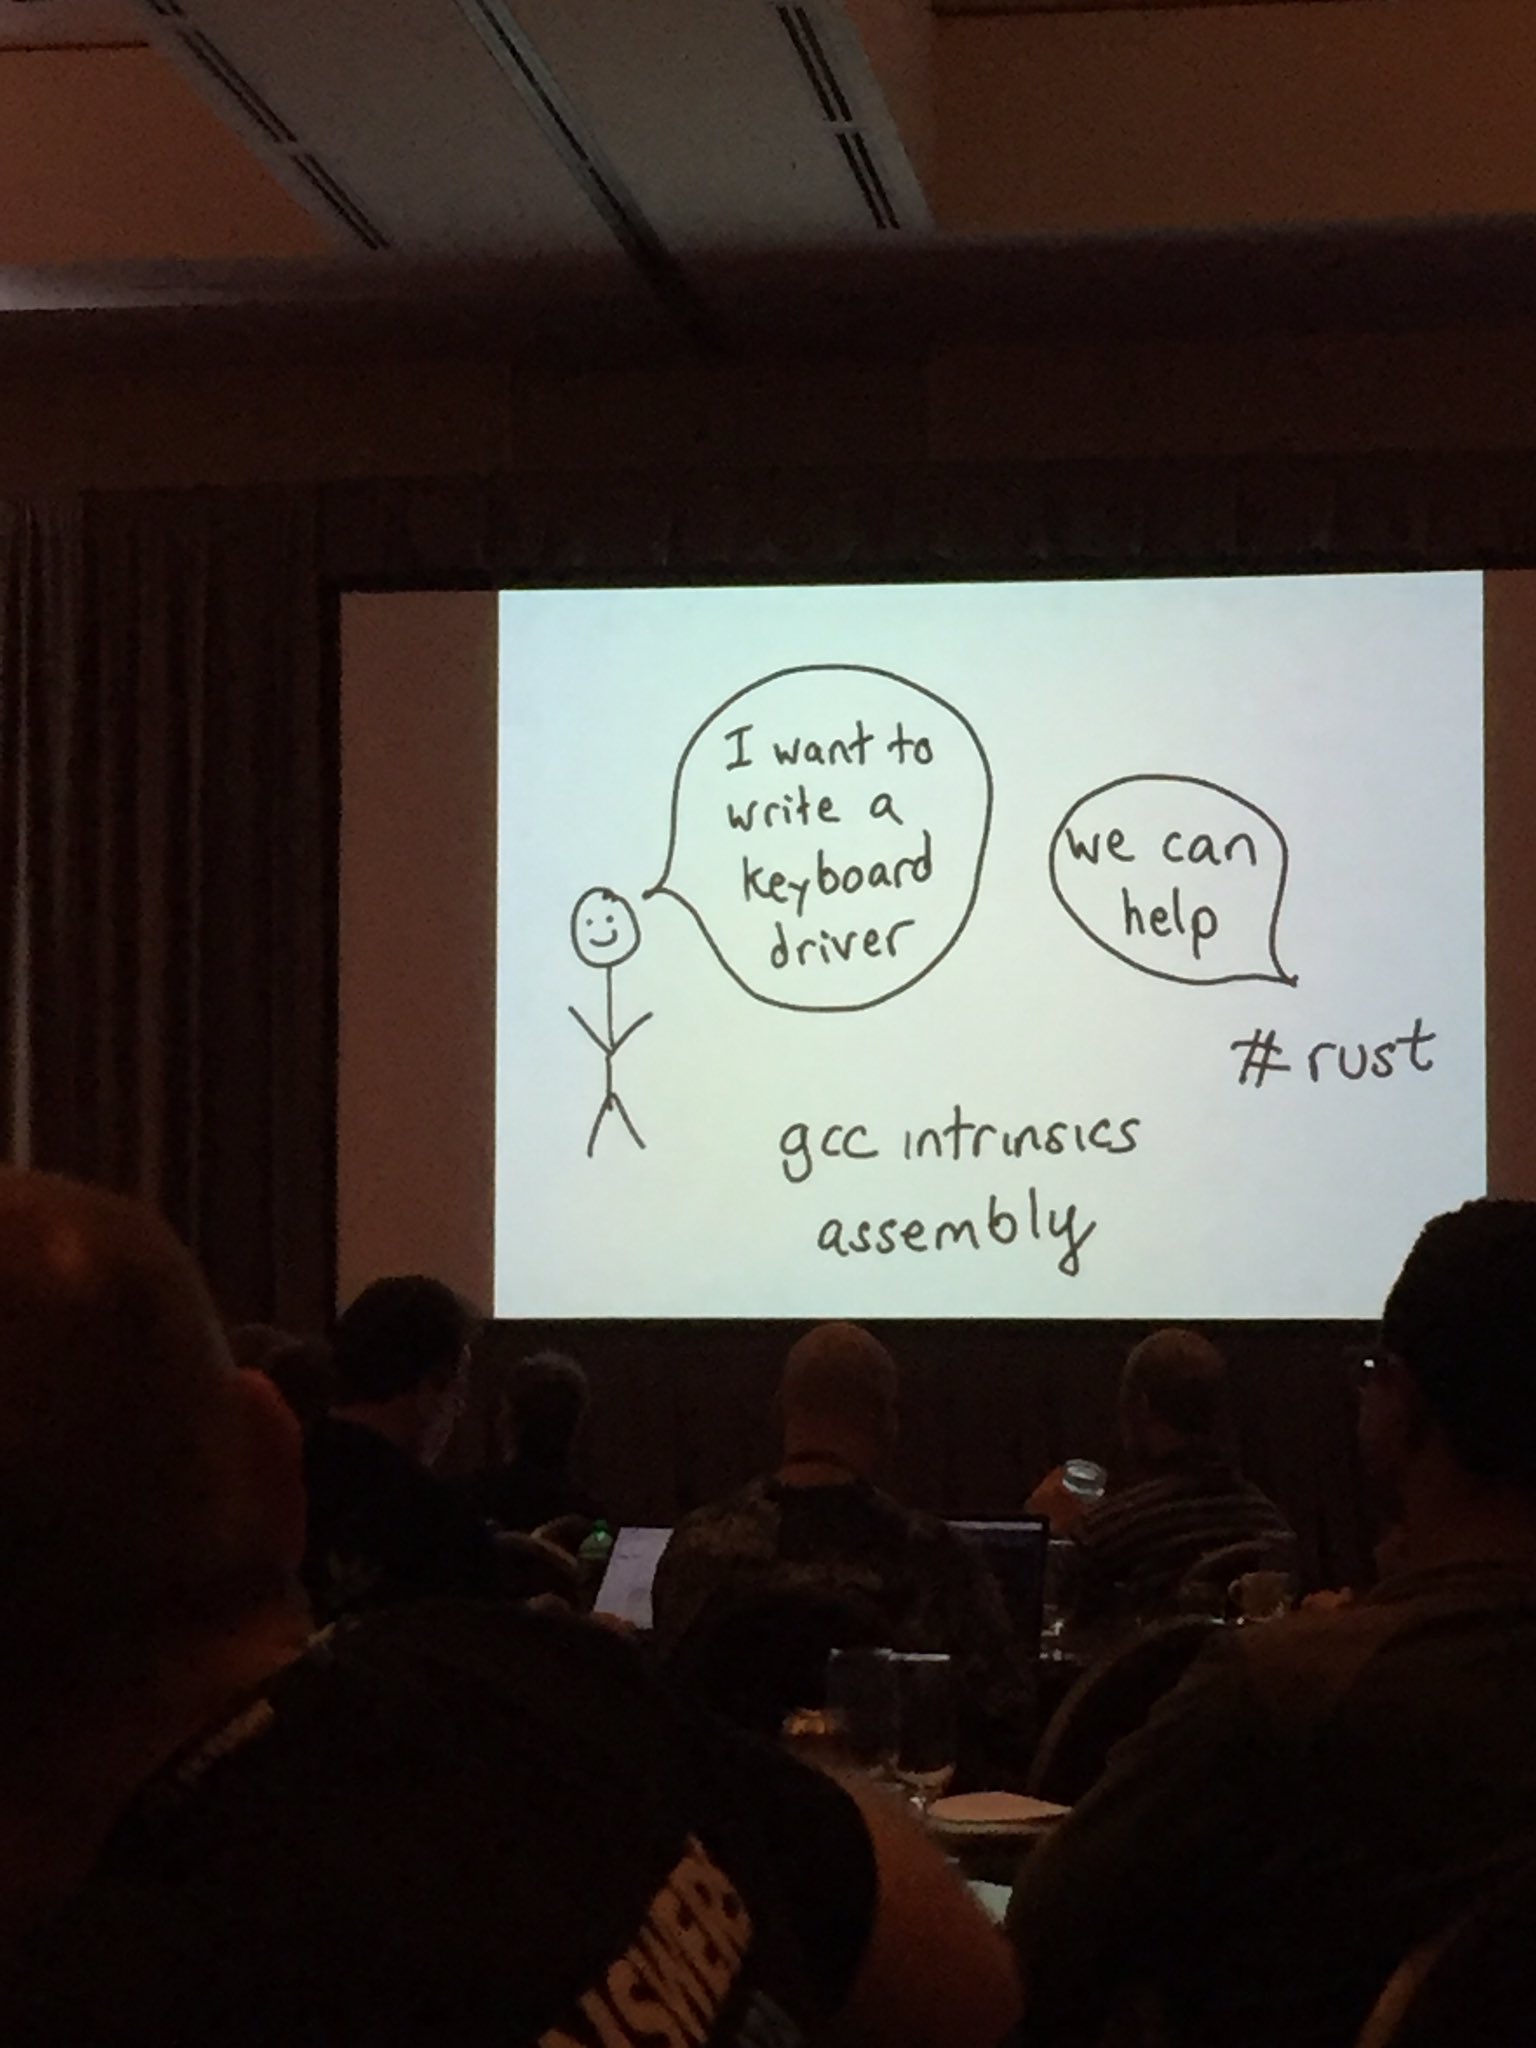 I want to
write a
keyboard
driver
we can
help
#rust
gcc intrinsics
assembly